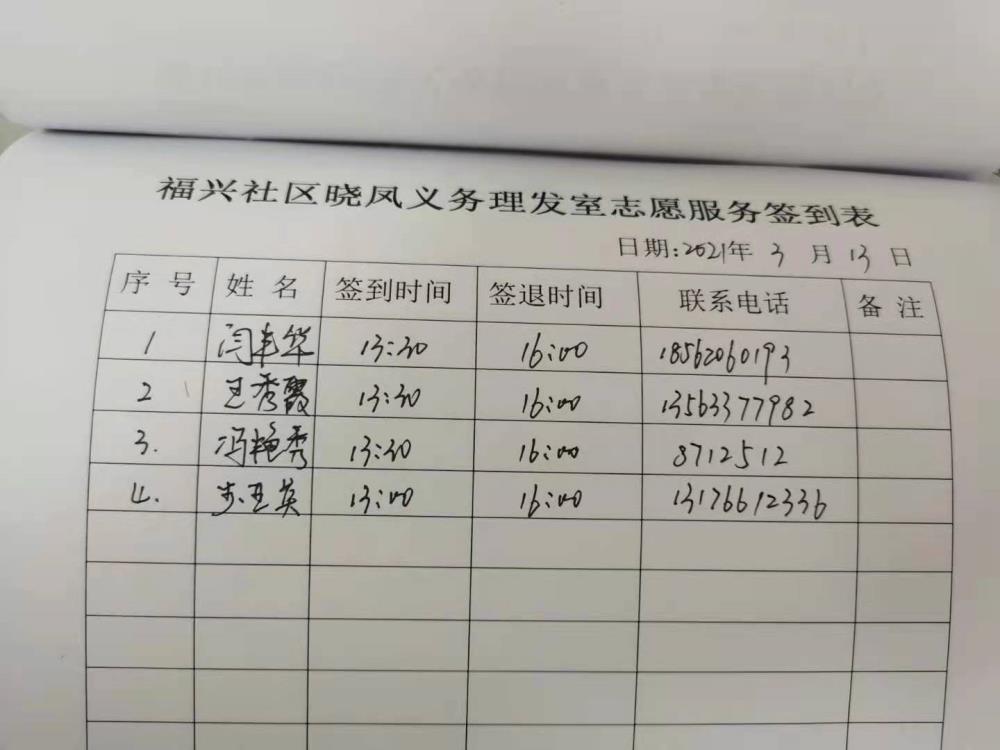 福兴社区晓凤义务理发室志愿服务签到表
日期:2021年 3 月 13 日
序 号 姓 名 签到时间 签退时间 联系电话 备 注
1 闫丰华 13:30 16:00 18562060193
2 王秀霞 13:30 16:00 13563377982
3. 冯艳秀 13:30 16:00 8712512
4. 步玉英 13:00 16:00 13176612336